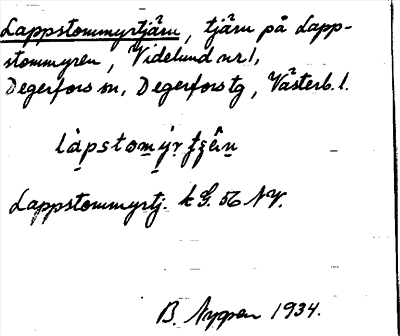 Lappstommyrtjärn, tjärn på Lapp-
stommyren, Videlund nr 1,
Degerfors sn, Degerfors tg, Västerb. l.
Lappstommyrtj. k G. 56 NV.
B. Nygren 1934.